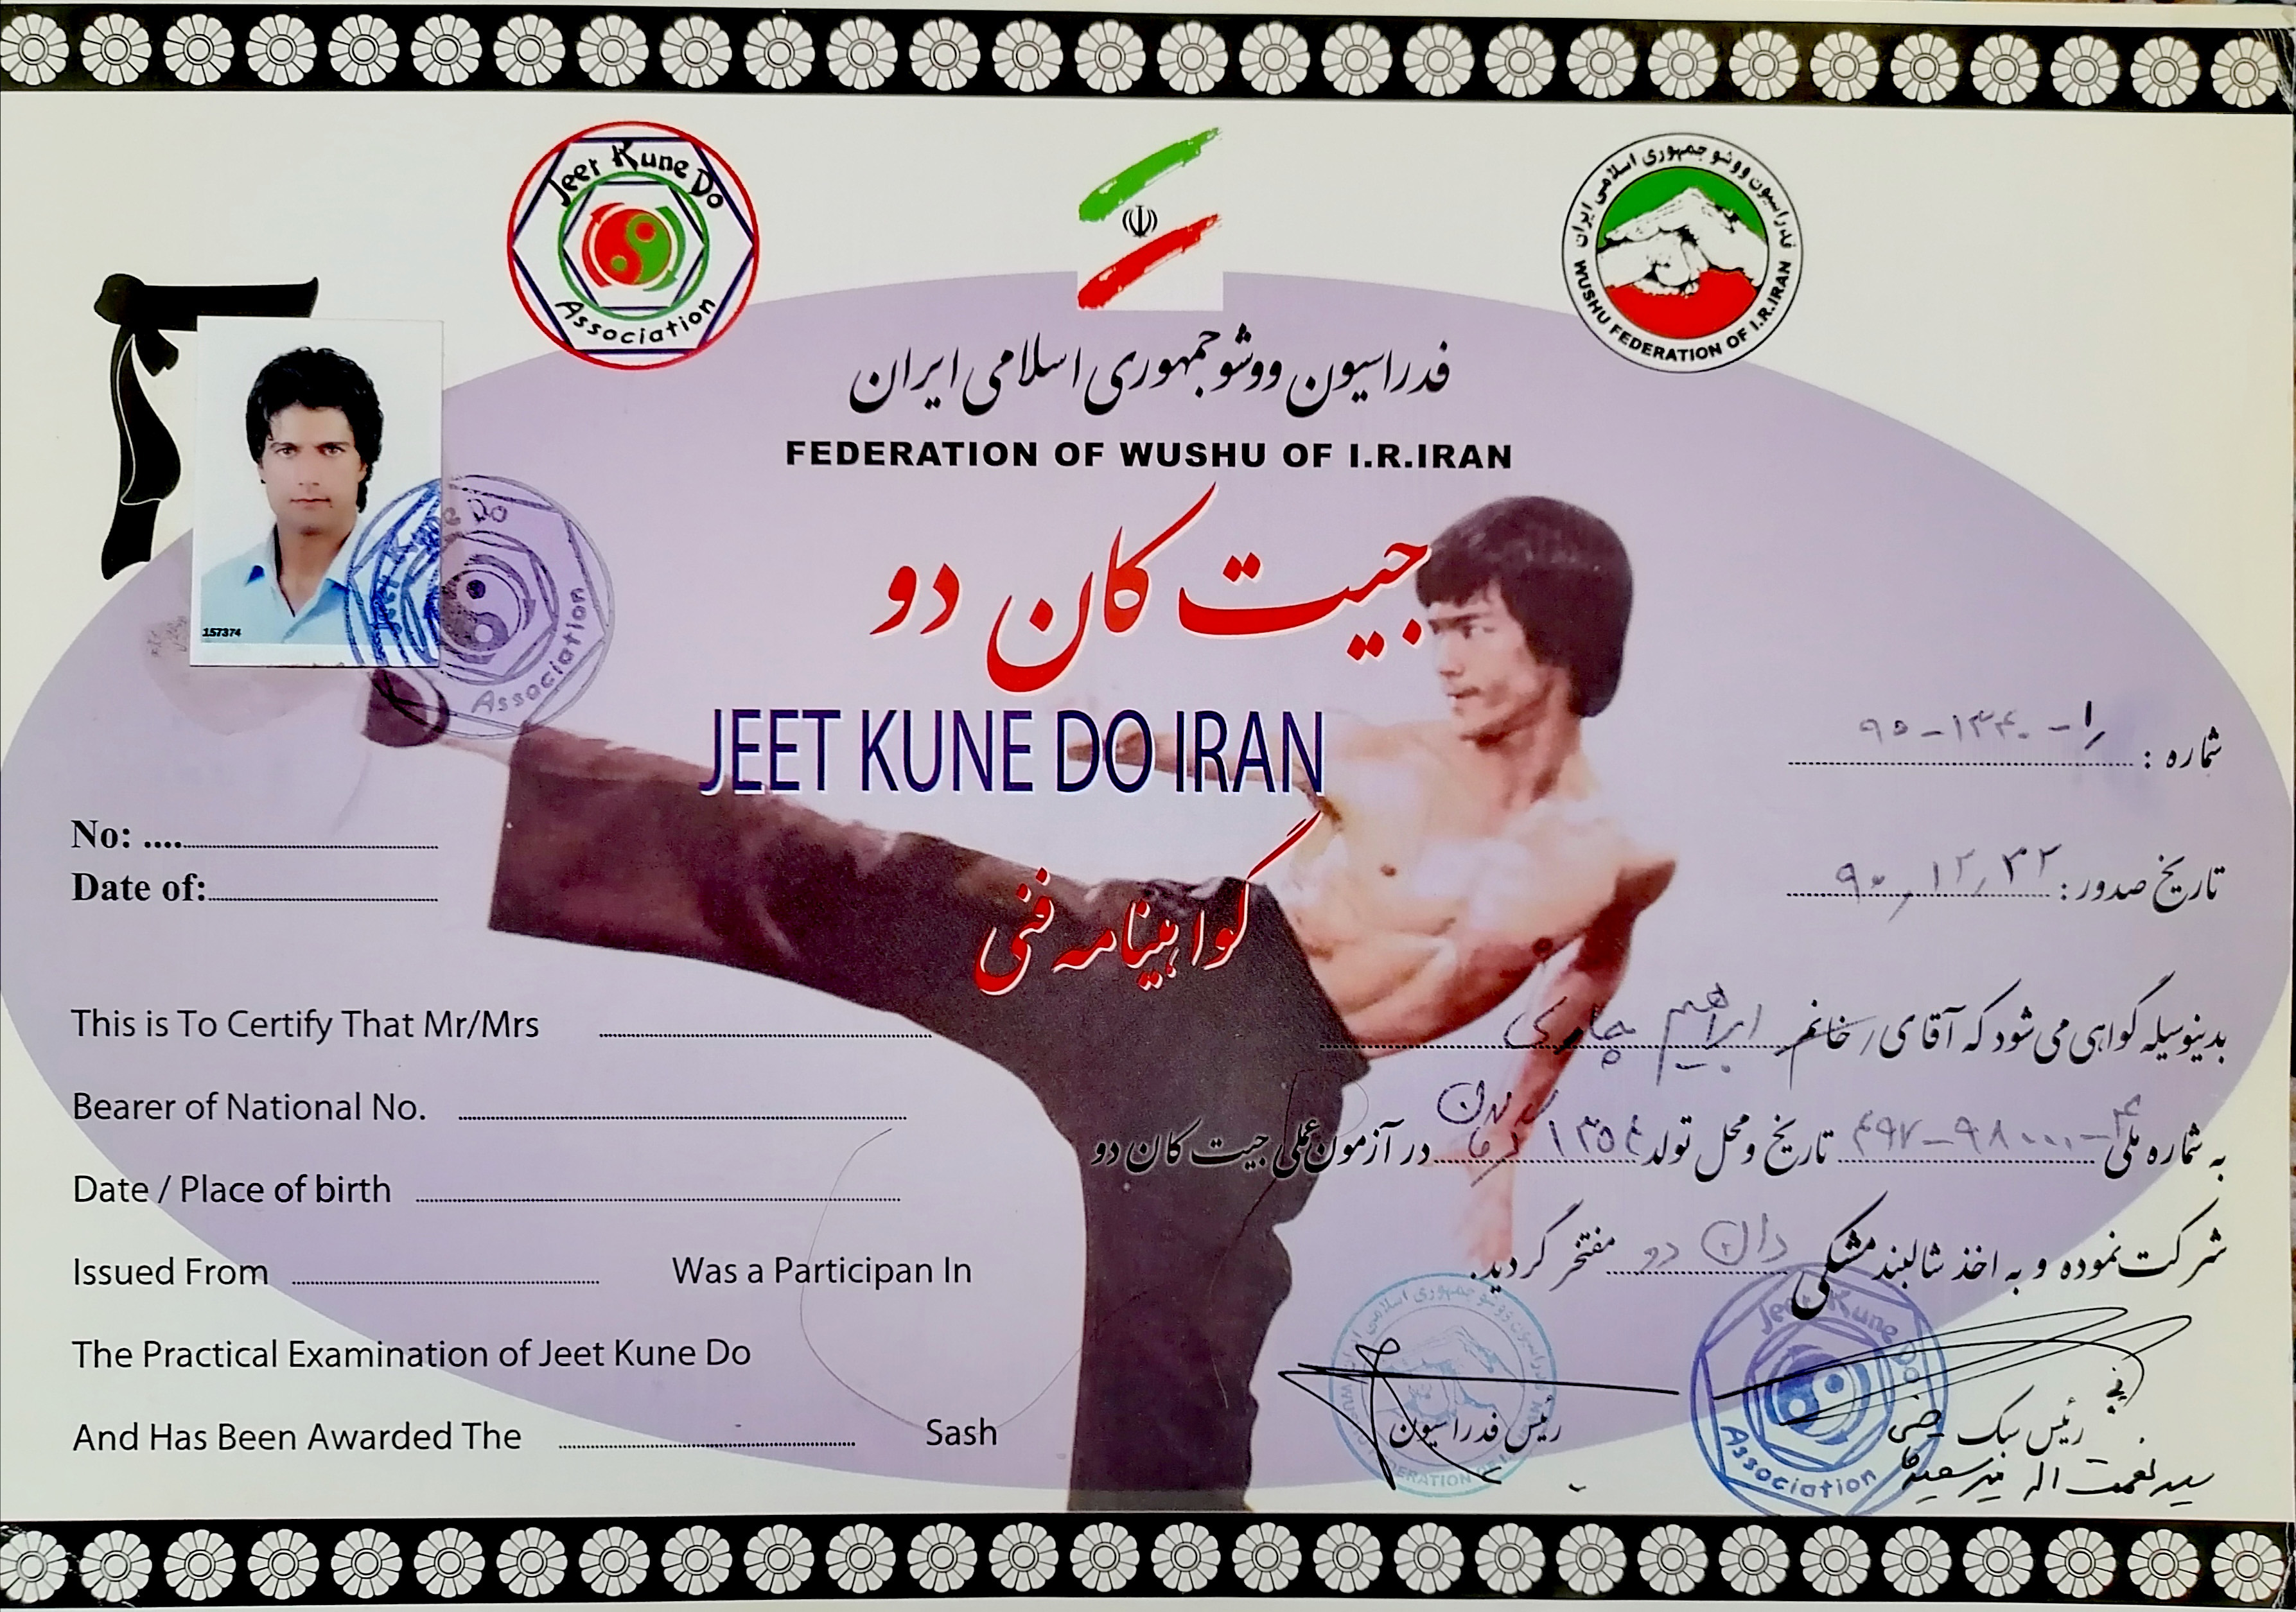 Jeet Kune Do
Association
فدراسیون ووشو جمهوری اسلامی ایران
WUSHU FEDERATION OF I.R.IRAN
فدراسیون ووشو جمهوری اسلامی ایران
FEDERATION OF WUSHU OF I.R.IRAN
جیت کان دو
JEET KUNE DO IRAN
گواهینامه فنی
157374
Association
شماره :
تاریخ صدور :
No: ....
Date of:
بدینوسیله گواهی می شود که آقای / خانم ابراهیم
به شماره ملی تاریخ و محل تولد ۱۳۵۴ در آزمون عملی جیت کان دو
شرکت نموده و به اخذ شالبند مشکی دان دو مفتخر گردید.
This is To Certify That Mr/Mrs
Bearer of National No.
Date / Place of birth
Issued From Was a Participan In
The Practical Examination of Jeet Kune Do
And Has Been Awarded The Sash
رئیس فدراسیون
رئیس سبک
سید نعمت اله
Jeet Kune Do
Association